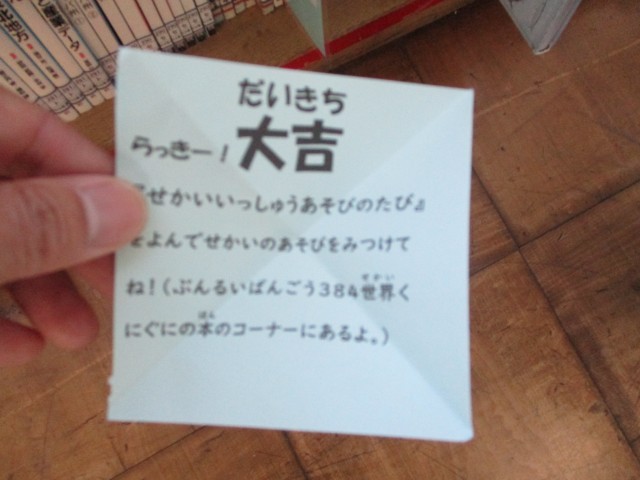 だいきち
らっきー！大吉
『せかいいっしゅうあそびのたび』
をよんでせかいのあそびをみつけて
せかい
ね！（ぶんるいばんごう３８４世界く
ほん
にぐにの本のコーナーにあるよ。）